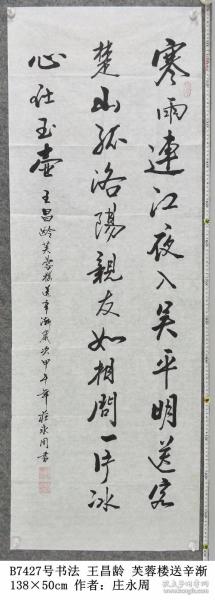 寒雨連江夜入吴平明送客
楚山孤洛陽親友如相問一片冰
心在玉壶
王昌龄芙蓉楼送辛渐岁次甲午年庄永周书
B7427号书法 王昌龄 芙蓉楼送辛渐
138×50cm 作者：庄永周